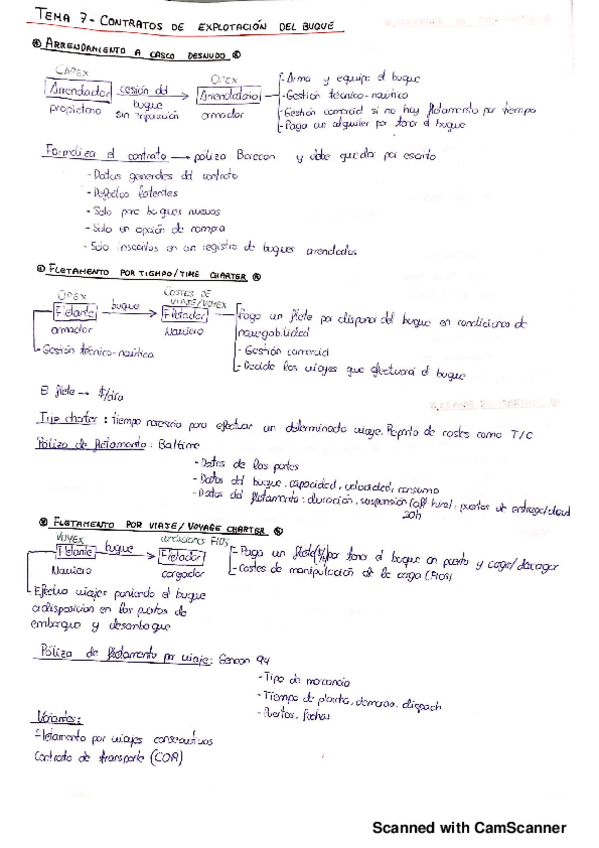 TEMA 7 - CONTRATOS DE EXPLOTACIÓN DEL BUQUE
ARRENDAMIENTO A CASCO DESNUDO
CAPEX
Arrendador
propietario
cesión del buque sin tripulación
OPEX
Arrendatario
armador
- Arma y equipa el buque
- Gestión técnico-náutica
- Gestión comercial si no hay fletamento por tiempo
- Paga un alquiler por tener el buque
Formaliza el contrato → póliza Barecon y debe quedar por escrito
- Datos generales del contrato
- Defectos latentes
- Solo para buques nuevos
- Solo en opción de compra
- Solo inscritos en un registro de buques arrendados
FLETAMENTO POR TIEMPO/TIME CHARTER
OPEX
Fletante
armador
- Gestión técnico-náutica
buque
COSTES DE VIAJE/VOYEX
Fletador
Naviero
- Paga un flete por disponer del buque en condiciones de navegabilidad
- Gestión comercial
- Decide los viajes que efectuará el buque
El flete → $/día
Trip charter: tiempo necesario para efectuar un determinado viaje. Reparto de costes como T/C
Póliza de fletamento: Baltime
- Datos de las partes
- Datos del buque, capacidad, velocidad, consumo
- Datos del fletamento: duración, suspensión (off hire), puertos de entrega/
FLETAMENTO POR VIAJE/VOYAGE CHARTER
VOYEX
Fletante
Naviero
buque
condiciones FIOS
Fletador
cargador
- Paga un flete por tener el buque en puerto y carga/descarga
- Costes de manipulación de la carga (FIOS)
- Efectúa viajes poniendo el buque
a disposición en los puertos de
embarque y desembarque
Póliza de fletamento por viaje: Gencon 94
- Tipo de mercancía
- Tiempo de plancha, demoras, dispach
- Puertos, fechas
Variantes:
Fletamento por viajes consecutivos
Contrato de transporte (COA)
Scanned with CamScanner